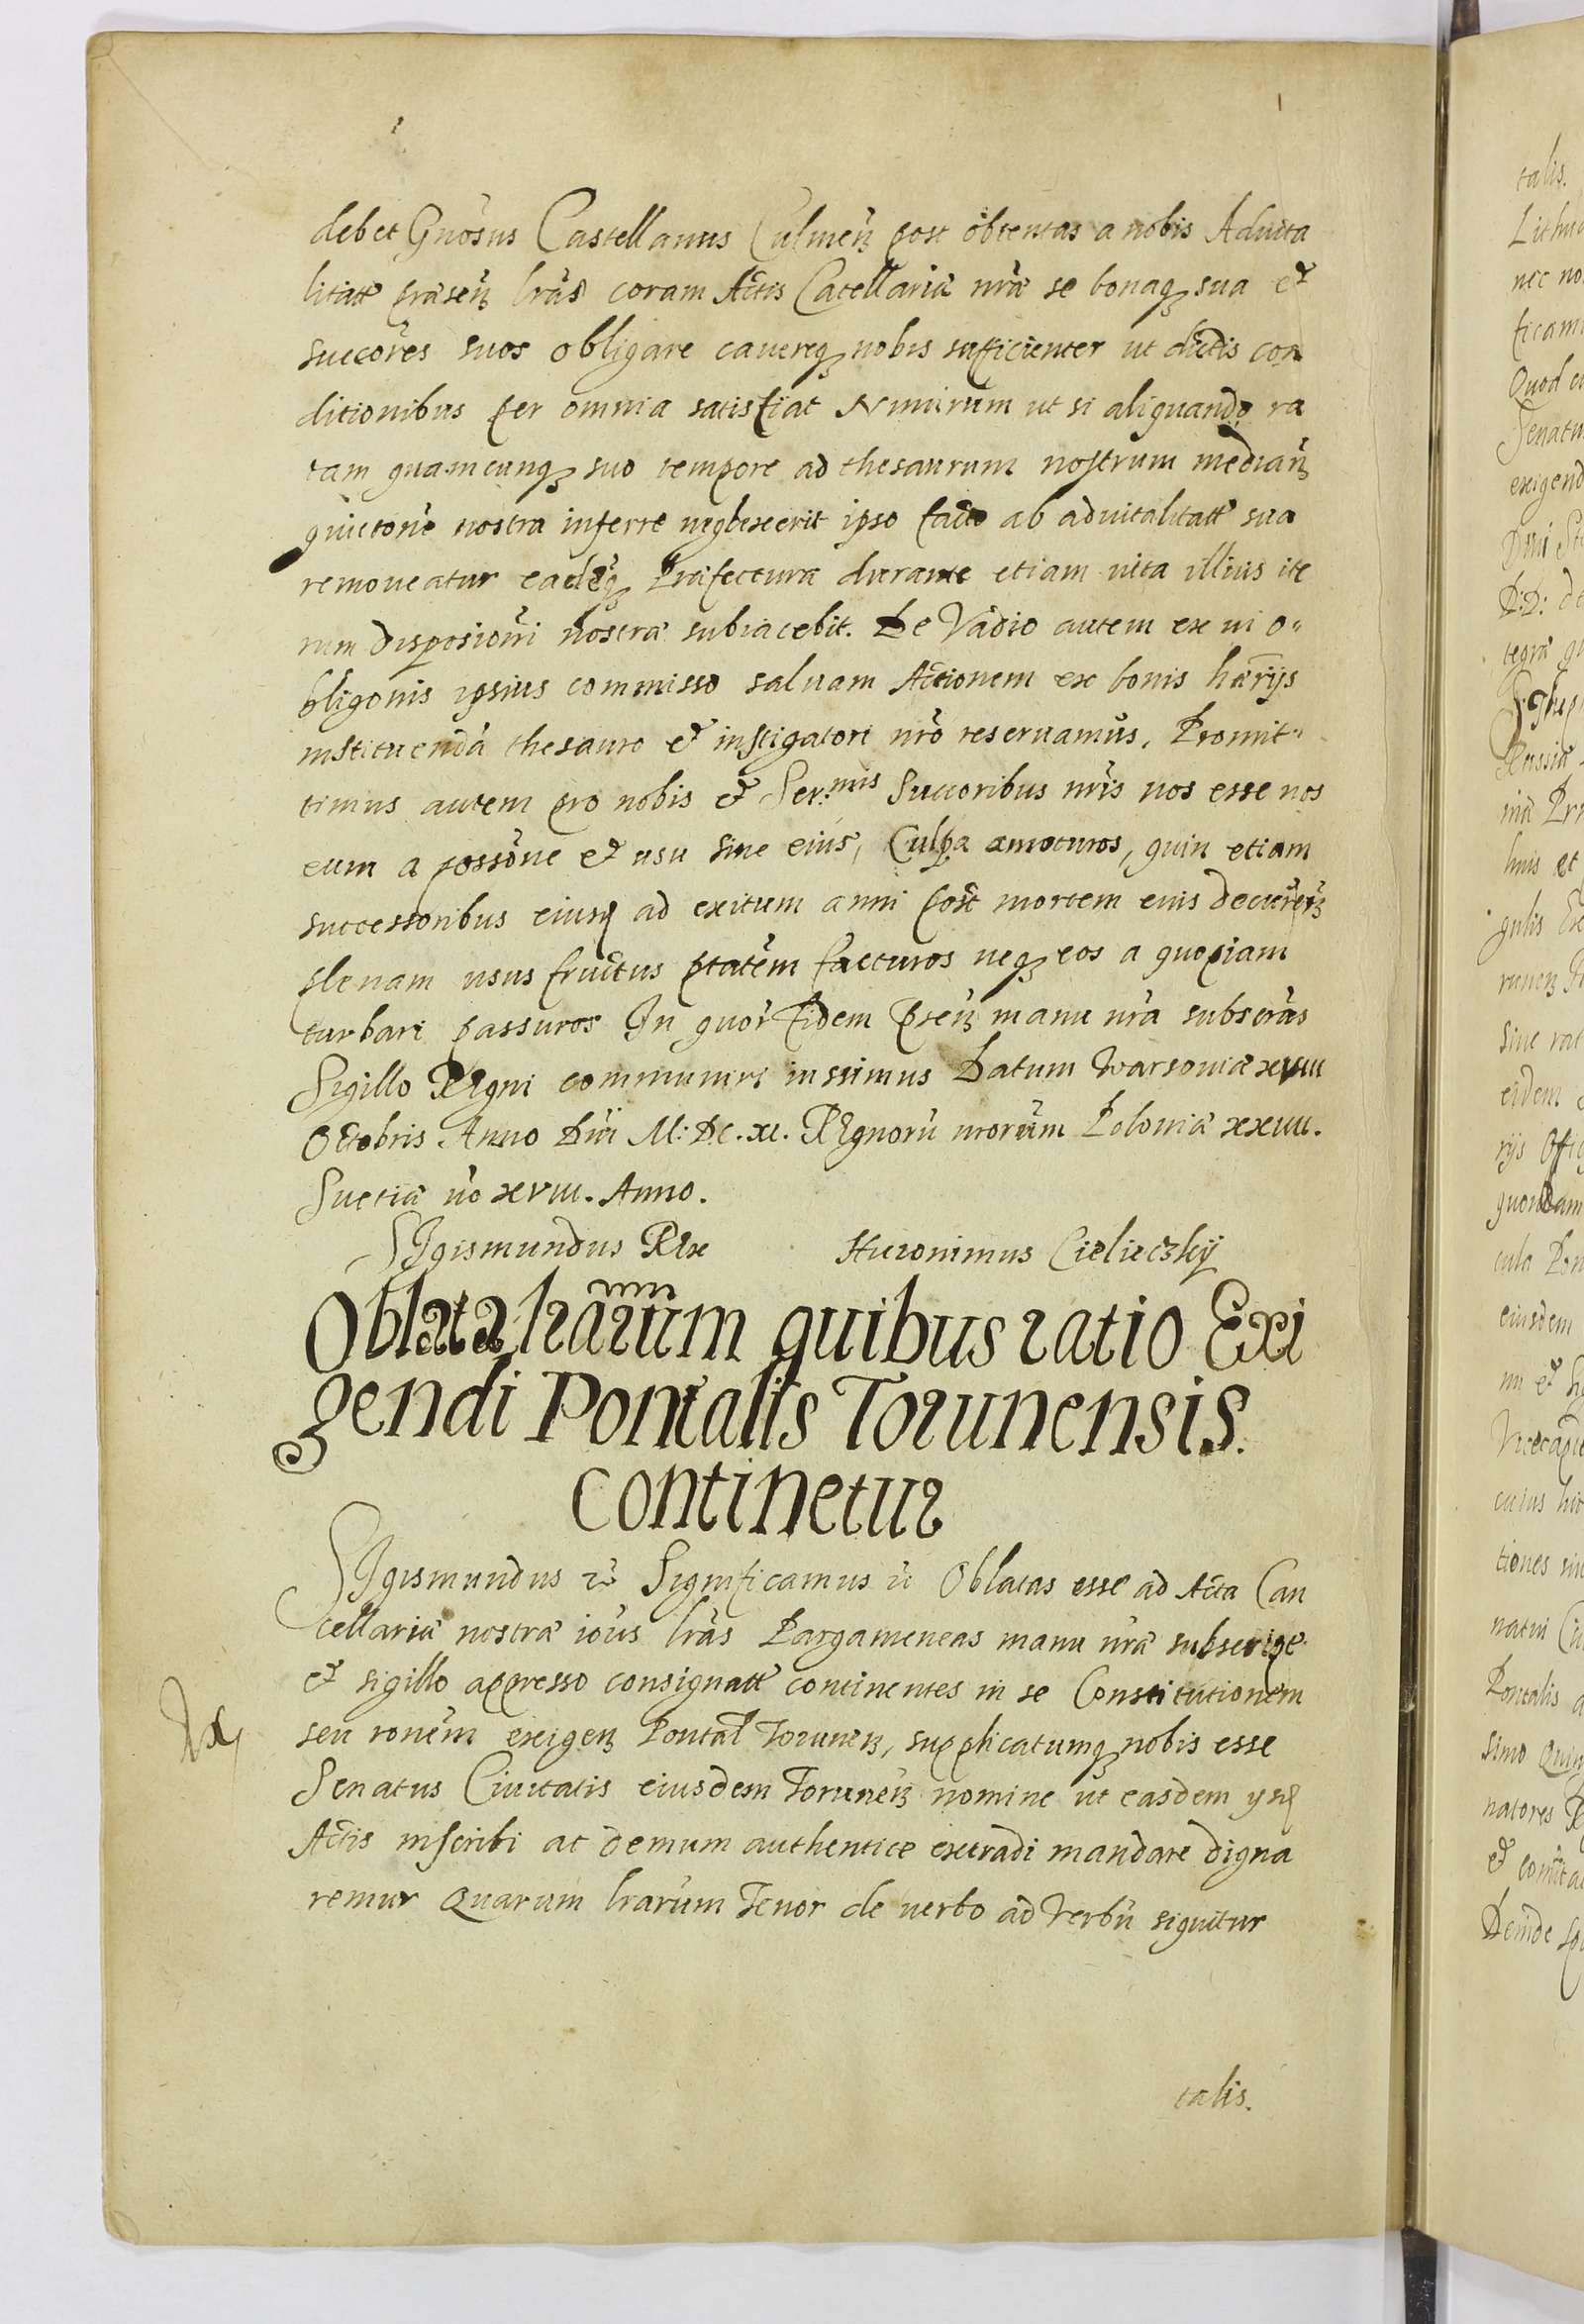 debet Gnōsus Castellanus Culmeñ post obtentas a nobis Aduita
litatt̃ præseñ lr̃as coram Actis Cãcellariæ nr̃æ se bonaq̃ sua et
succōres suos obligare cauereq̃ nobis sufficienter ut dictis con
ditionibus per omnia satisfiat Nimirum ut si aliquando ra
tam quamcunq̃ suo tempore ad thesaurum nostrum mediañ
quictōne nostra inferre neglexerit ipso facto ab aduitalitatt̃ sua
remoueatur eadẽq̃ Præfectura durante etiam uita illius ite
rum disposiōni nostræ subiacebit. De Vadio autem ex ui o=
bligōnis ipsius commisso saluam Actionem ex bonis hær̃ijs
instituendã thesauro et instigatori nr̃o reseruamus. Promit=
timus autem pro nobis et Ser:mis Succoribus nr̃is nos esse nos
eum a possōne et usu sine eius, Culpa amoturos, quin etiam
successoribus eiusq̃ ad exitum anni post mortem eius decurreñ
plenam usus fructus p̃tatẽm facturos neq̃ eos a quopiam
turbari passuros In quor̃ fidem p̃señ manu nr̃a subscr̃as
Sigillo REgni communiri iussimus Datum Warsouiæ xviii
Octobris Anno Dñi M: DC. xi. REgnorũ nrorũm Poloniæ xxiiii.
Suetiæ ũo xviii. Anno.
SIgismundus REx Hieronimus Cielieczkÿ
Oblata lr̃arum quibus ratio Exi
gendi Pontalis Torunensis.
continetur
SIgismundus &c̃ Significamus &c̃ Oblatas esse ad Acta Can
cellariæ nostræ iõus lr̃as Pargameneas manu nr̃a subscriptt.
et sigillo appresso consignatt̃ continentes in se Constitutionem
seu ronẽm exigeñ Pontal̃ Toruneñ, supplicatumq̃ nobis esse
Senatus Ciuitatis eiusdem Toruneñ nomine ut easdem ysd̃
Actis inscribi ac demum authentice extradi mandare digna
remur Quarum lrarũm Tenor de uerbo ad Verbũ siquitur
talis.